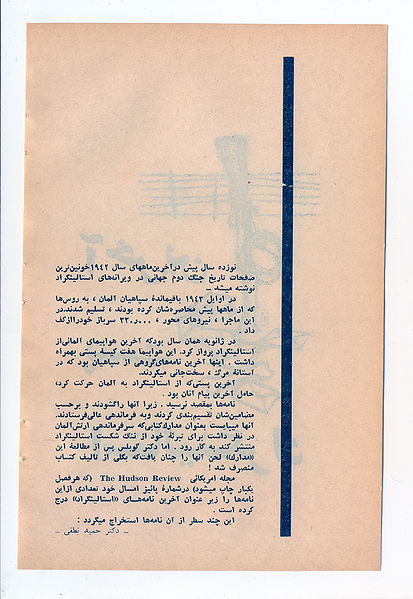 نوزده سال پیش در آخرین ماههای سال ۱۹۴۲ خونین‌ترین
صفحات تاریخ جنگ دوم جهانی در ویرانه‌های استالینگراد
نوشته میشد –
در اوایل ۱۹۴۳ باقیماندهٔ سپاهیان المان ، به روس‌ها
که از ماهها پیش محاصره‌شان کرده بودند ، تسلیم شدند. در
این ماجرا ، نیروهای محور ، ۳۳۰,۰۰۰ سرباز خود را از کف
داد .
در ژانویه همان سال بود که آخرین هواپیمای المانی از
استالینگراد پرواز کرد. این هواپیما هفت کیسهٔ پستی بهمراه
داشت . اینها آخرین نامه‌های گروهی از سپاهیان بود که در
آستانهٔ مرگ ، سخت‌جانی میکردند.
آخرین پستی‌که از استالینگراد به المان حرکت کرد،
حامل آخرین پیام آنان بود .
نامه‌ها بمقصد نرسید . زیرا آنها را گشودند و برحسب
مضامین‌شان تقسیم‌بندی کردند و به فرماندهی عالی فرستادند.
آنها میبایست بعنوان مدارک کتابی‌که سرفرماندهی ارتش المان
در نظر داشت برای تبرئهٔ خود از ننگ شکست استالینگراد
منتشر کند به کار رود . اما دکتر گوبلس پس از مطالعهٔ این
«مدارک» لحن آنها را چنان یافت‌که بکلی از تالیف کتاب
منصرف شد !
مجله امریکائی The Hudson Review (که هر فصل
یکبار چاپ میشود) در شمارهٔ پائیز امسال خود تعدادی از این
نامه‌ها را زیر عنوان آخرین نامه‌هــای «استالینگراد» درج
کرده است .
این چند سطر از آن نامه‌ها استخراج میگردد :
– دکتر حمید نطقی –